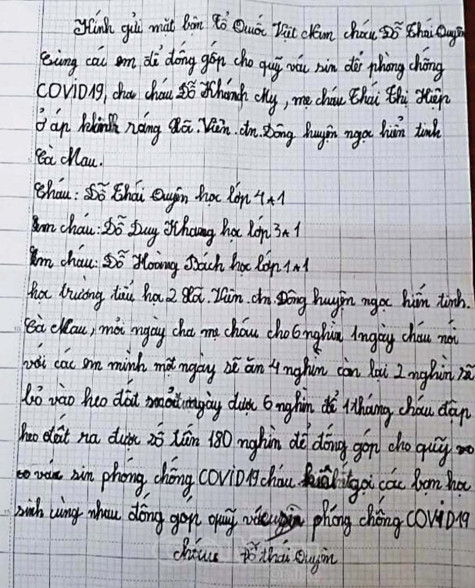 Kính gửi mặt bận Tổ Quốc Việt Nam cháu Đỗ Thái Quyên
cùng các em để đóng góp cho quỹ vác sin để phòng chống
COVID19, cha cháu Đỗ Khánh My, mẹ cháu Thái Thị Hiệp
ở ấp kênh ráng Xã. Viên. An. Đông huyện ngọc hiển tỉnh
Cà Mau.
Cháu: Đỗ Thái Quyên học lớp 4A1
Em cháu: Đỗ Duy Khang học lớp 3A1
Em cháu: Đỗ Hoàng Bách học lớp 1A1
học trường tiểu học 2 Xã. Viên. An. Đông huyện ngọc hiển tỉnh.
Cà Mau, mỗi ngày cha mẹ cháu cho 6 nghìn 1 ngày cháu nói
với các em mình một ngày sẽ ăn 4 nghìn còn lại 2 nghìn sẽ
bỏ vào heo đất mỗi ngày được 6 nghìn để 1 tháng cháu đập
heo đất ra được số tiền 180 nghìn để đóng góp cho quỹ
vác sin phòng chống COVID19 cháu gọi các bạn học
sinh cùng nhau đóng góp quỹ phòng chống COVID19
cháu Đỗ thái Quyên